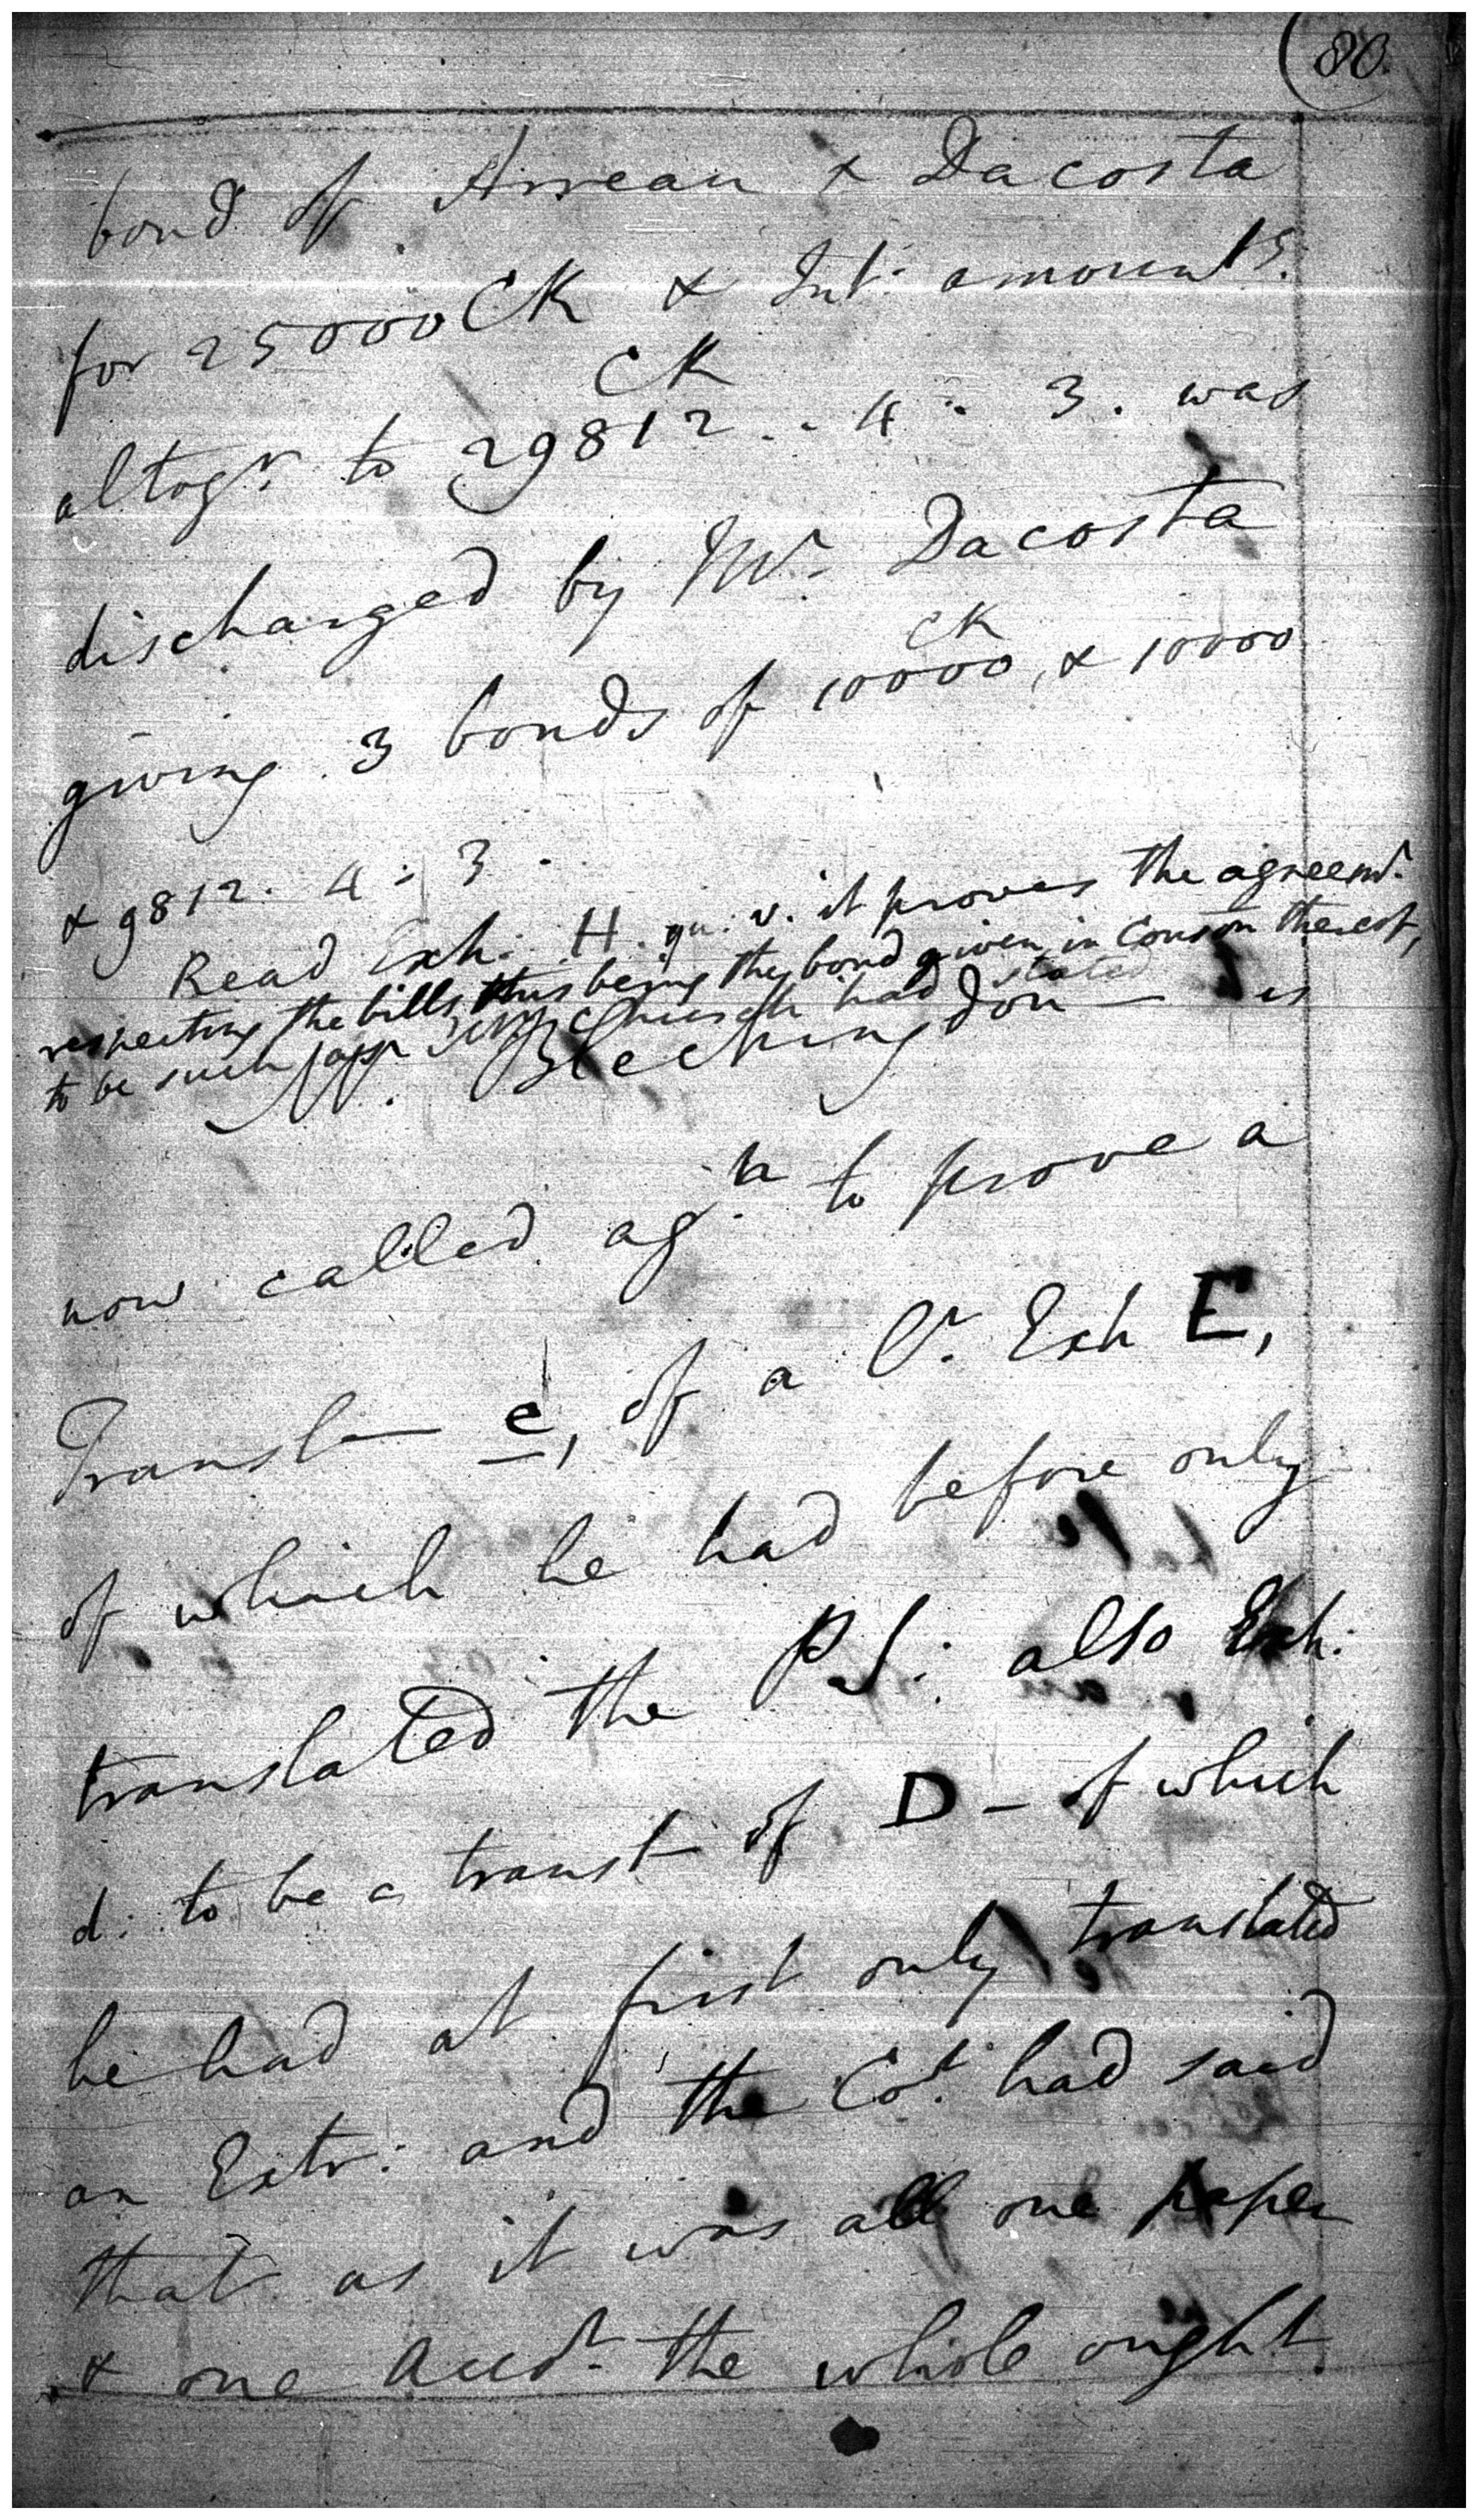 80.
bond of Arrean & Dacosta
for 25000 CK & Int: amounts.
CK
altogr. to 29812 .. 4 : 3 . was
discharged by Mr. Dacosta
CK
giving 3 bonds of 10000, & 10000
& 9812. 4 : 3 .
Read Exh: H. qu. v. it proves the agreemt.
respecting the bills, this being the bond given in Conson thereof,
to be such Church had stated
Mr. Blechingdon — is
now called agn. to prove a
Transl— e, of a Lr. Exh E,
of which he had before only
translated the PS: also Exh:
d: to be a transl— of D — of which
he had at first only translated
an Extr: and the Cot. had said
that as it was all one paper
& one Accot. the whole ought